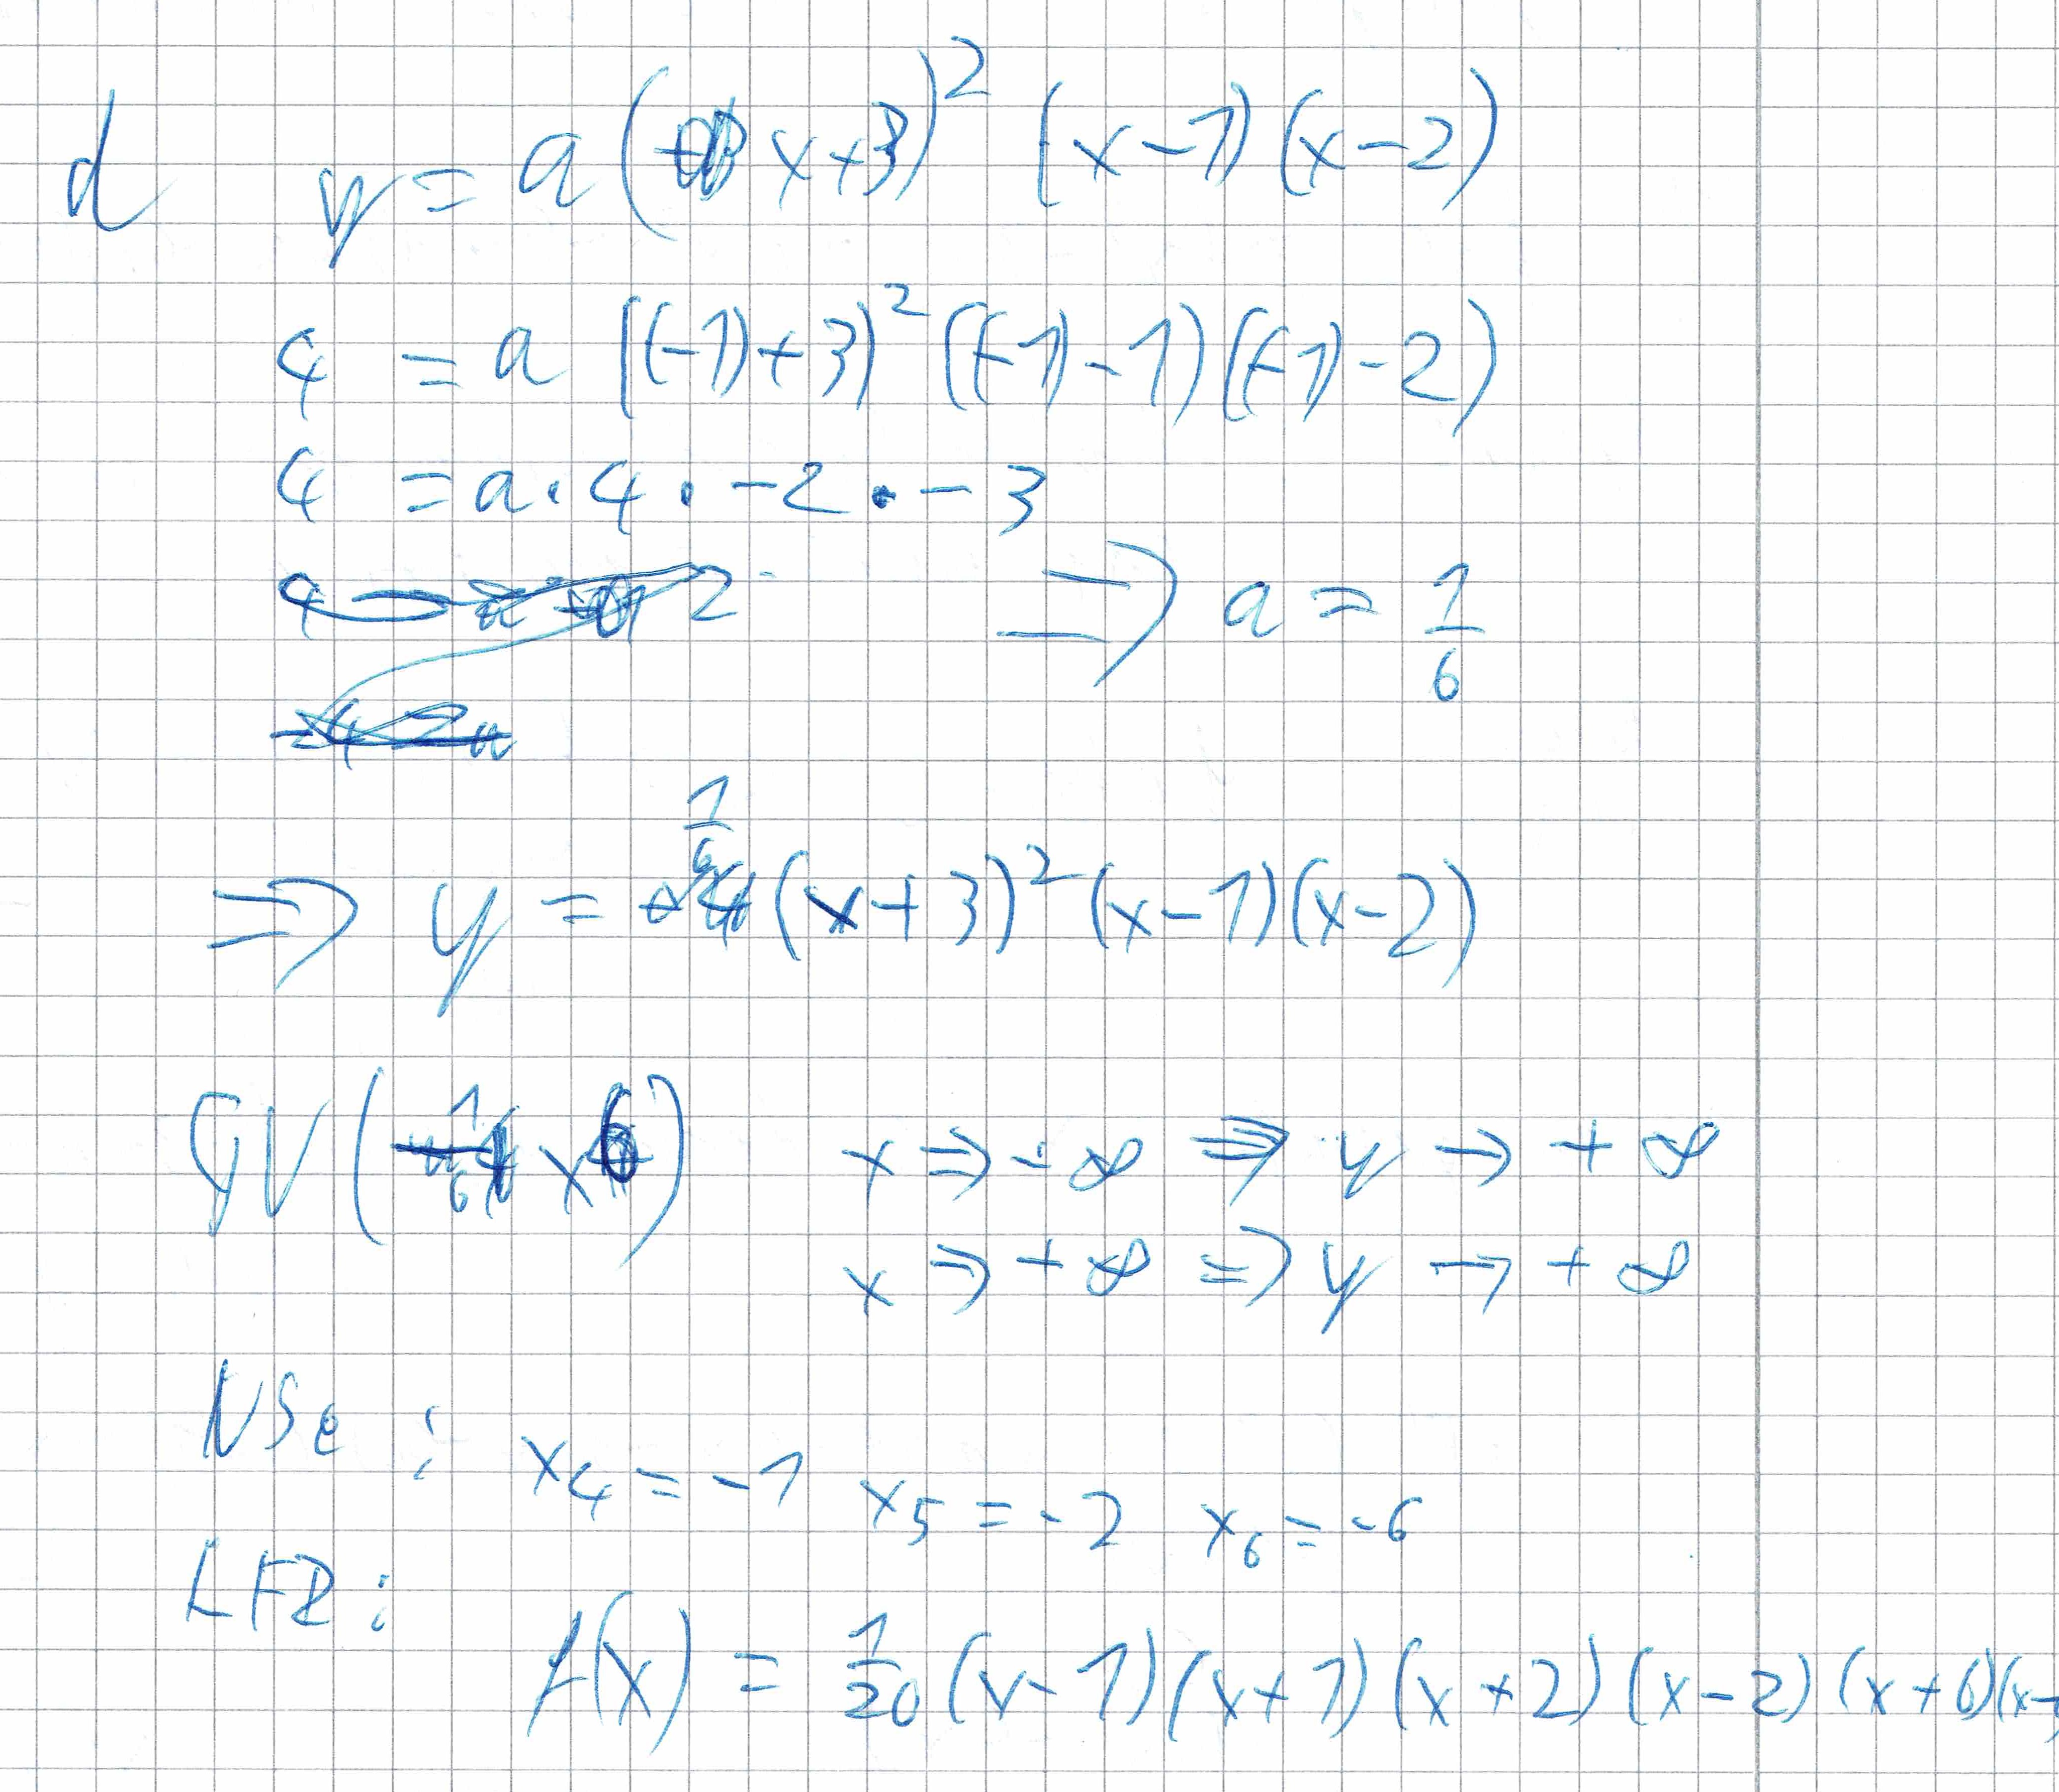 d y = a ( x+3)² (x-1)(x-2)
4 = a ((-1)+3)² ((-1)-1)((-1)-2)
4 = a · 4 · -2 · -3
⇒ a = 1/6
⇒ y = 1/6 (x+3)² (x-1)(x-2)
GV ( 1/6 x ) x ⇒ -∞ ⇒ y → +∞
x ⇒ +∞ ⇒ y → +∞
NSe : x₄ = -1 x₅ = -2 x₆ = -6
LFZ :
f(x) = 1/20 (x-1)(x+1)(x+2)(x-2)(x+6)(x-